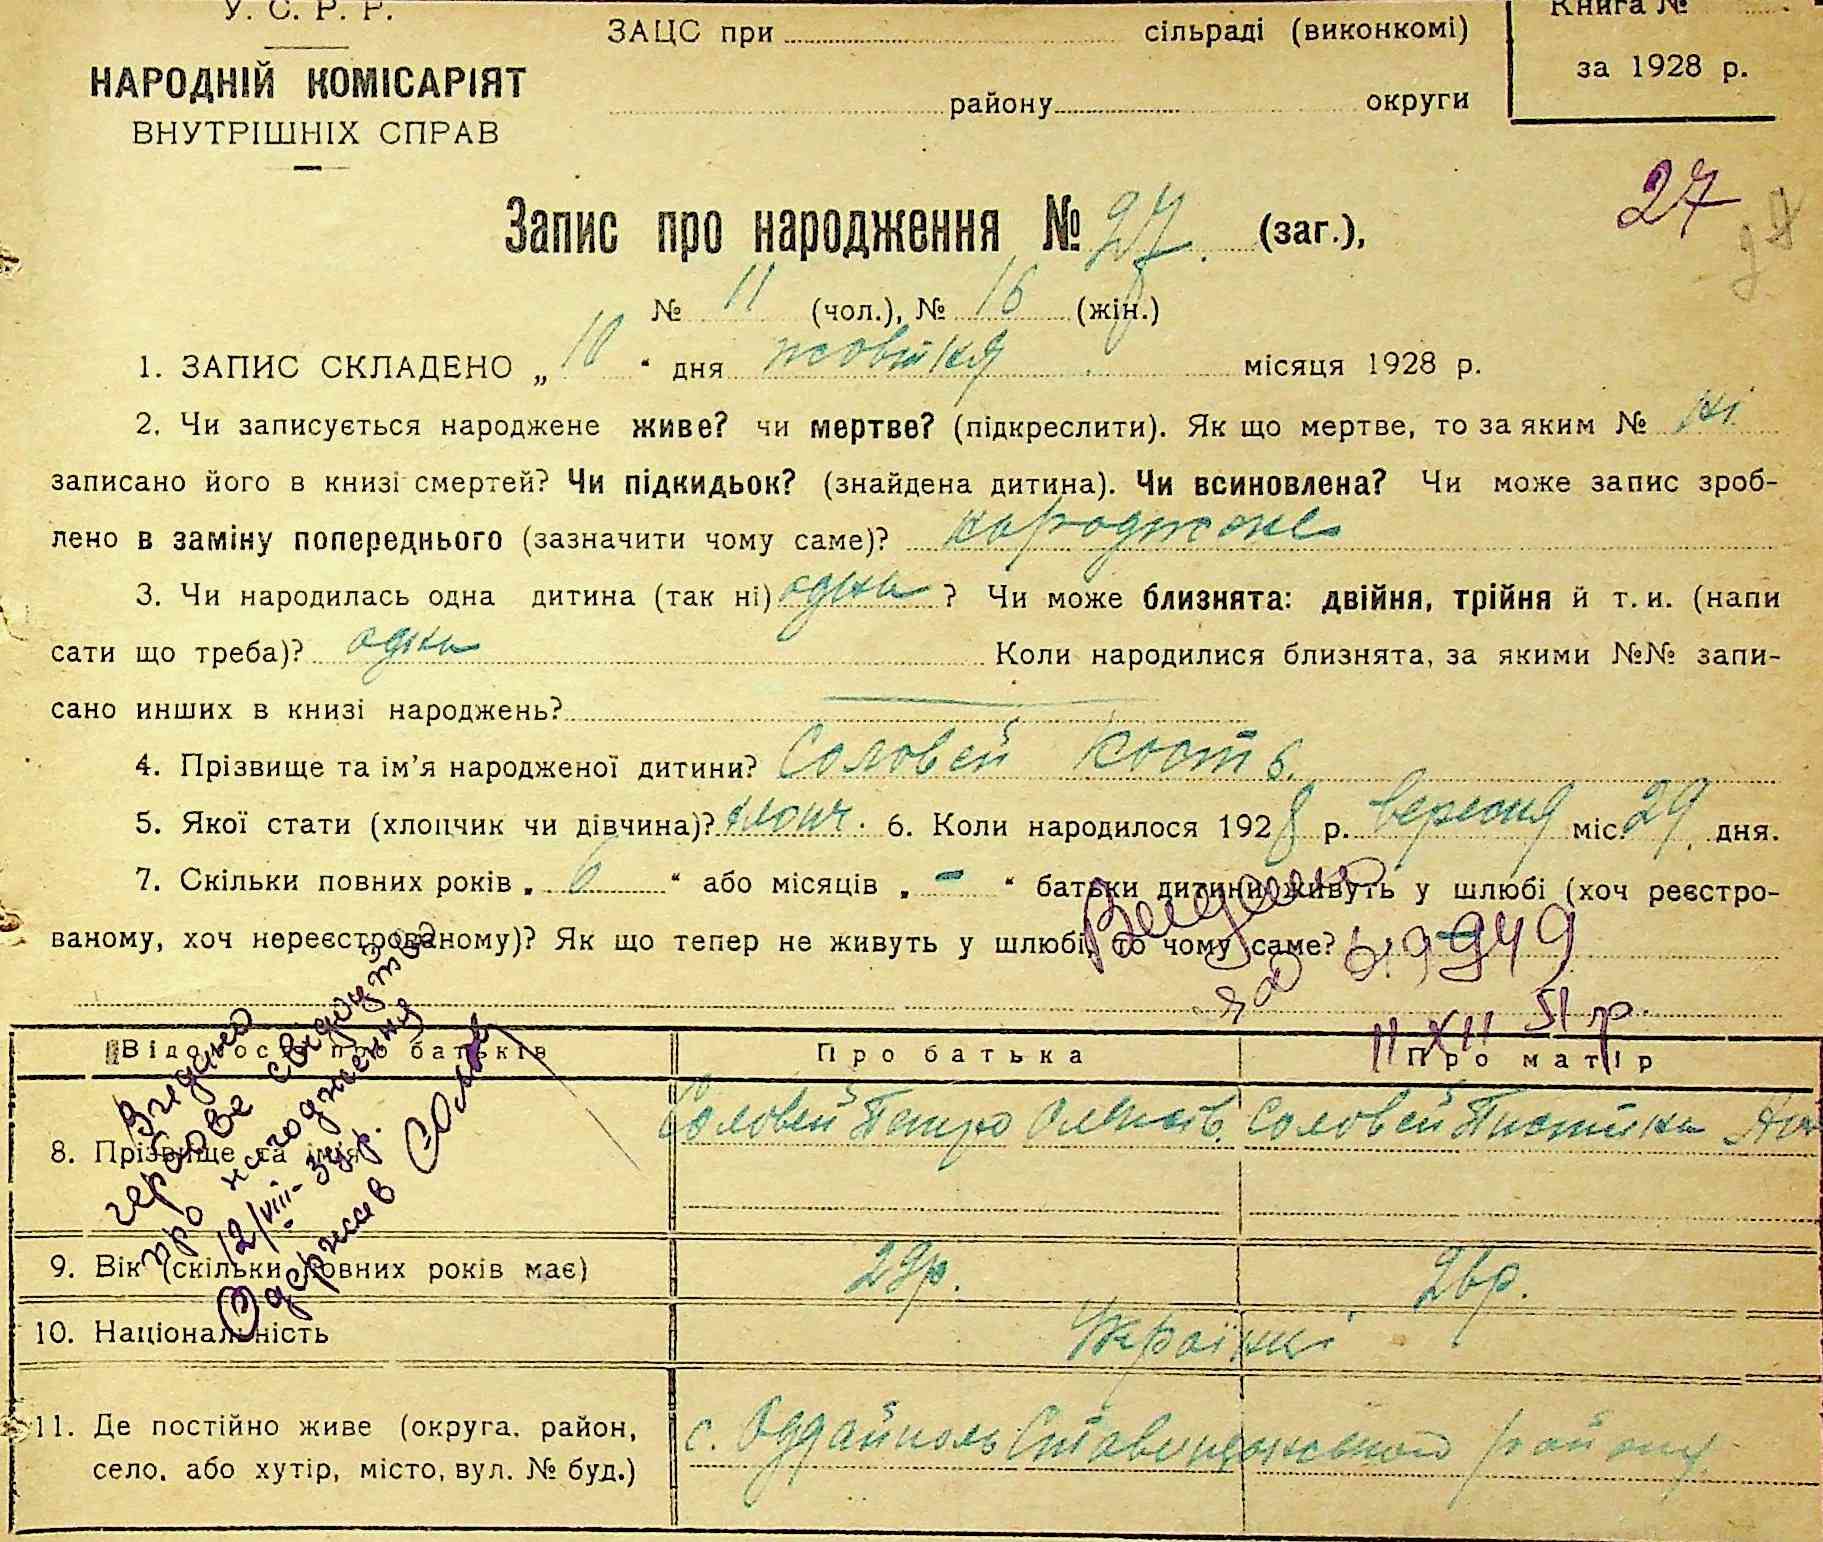 У. С. Р. Р.
НАРОДНІЙ КОМІСАРІЯТ
ВНУТРІШНІХ СПРАВ
ЗАЦС при сільраді (виконкомі)
району округи
Книга №
за 1928 р.
27
27
Запис про народження № 27. (заг.),
№ 11 (чол.), № 16 (жін.)
1. ЗАПИС СКЛАДЕНО „ 10 “ дня жовтня місяця 1928 р.
2. Чи записується народжене живе? чи мертве? (підкреслити). Як що мертве, то за яким № ні
записано його в книзі смертей? Чи підкидьок? (знайдена дитина). Чи всиновлена? Чи може запис зроб-
лено в заміну попереднього (зазначити чому саме)? народжене
3. Чи народилась одна дитина (так ні) одна ? Чи може близнята: двійня, трійня й т. и. (напи
сати що треба)? одна Коли народилися близнята, за якими №№ запи-
сано инших в книзі народжень?
4. Прізвище та ім’я народженої дитини? Соловей Кость.
5. Якої стати (хлопчик чи дівчина)? хлопч. 6. Коли народилося 1928 р. вересня міс. 29 дня.
7. Скільки повних років „ 6 “ або місяців „ - “ батьки дитини живуть у шлюбі (хоч реєстро-
ваному, хоч нереєстрованому)? Як що тепер не живуть у шлюбі, то чому саме?
Видано
949
11 XII 51 р.
Видано
гербове свідоцтво
про народження
12/VIII- 32 р.
Одержав
Відомості про батьків Про батька Про матір
8. Прізвище та ім’я Соловей Петро Соловей
9. Вік (скільки повних років має) 29р. 26р.
10. Національність Українці
11. Де постійно живе (округа, район,
село, або хутір, місто, вул. № буд.) с. Оддайполь Ставищанського району